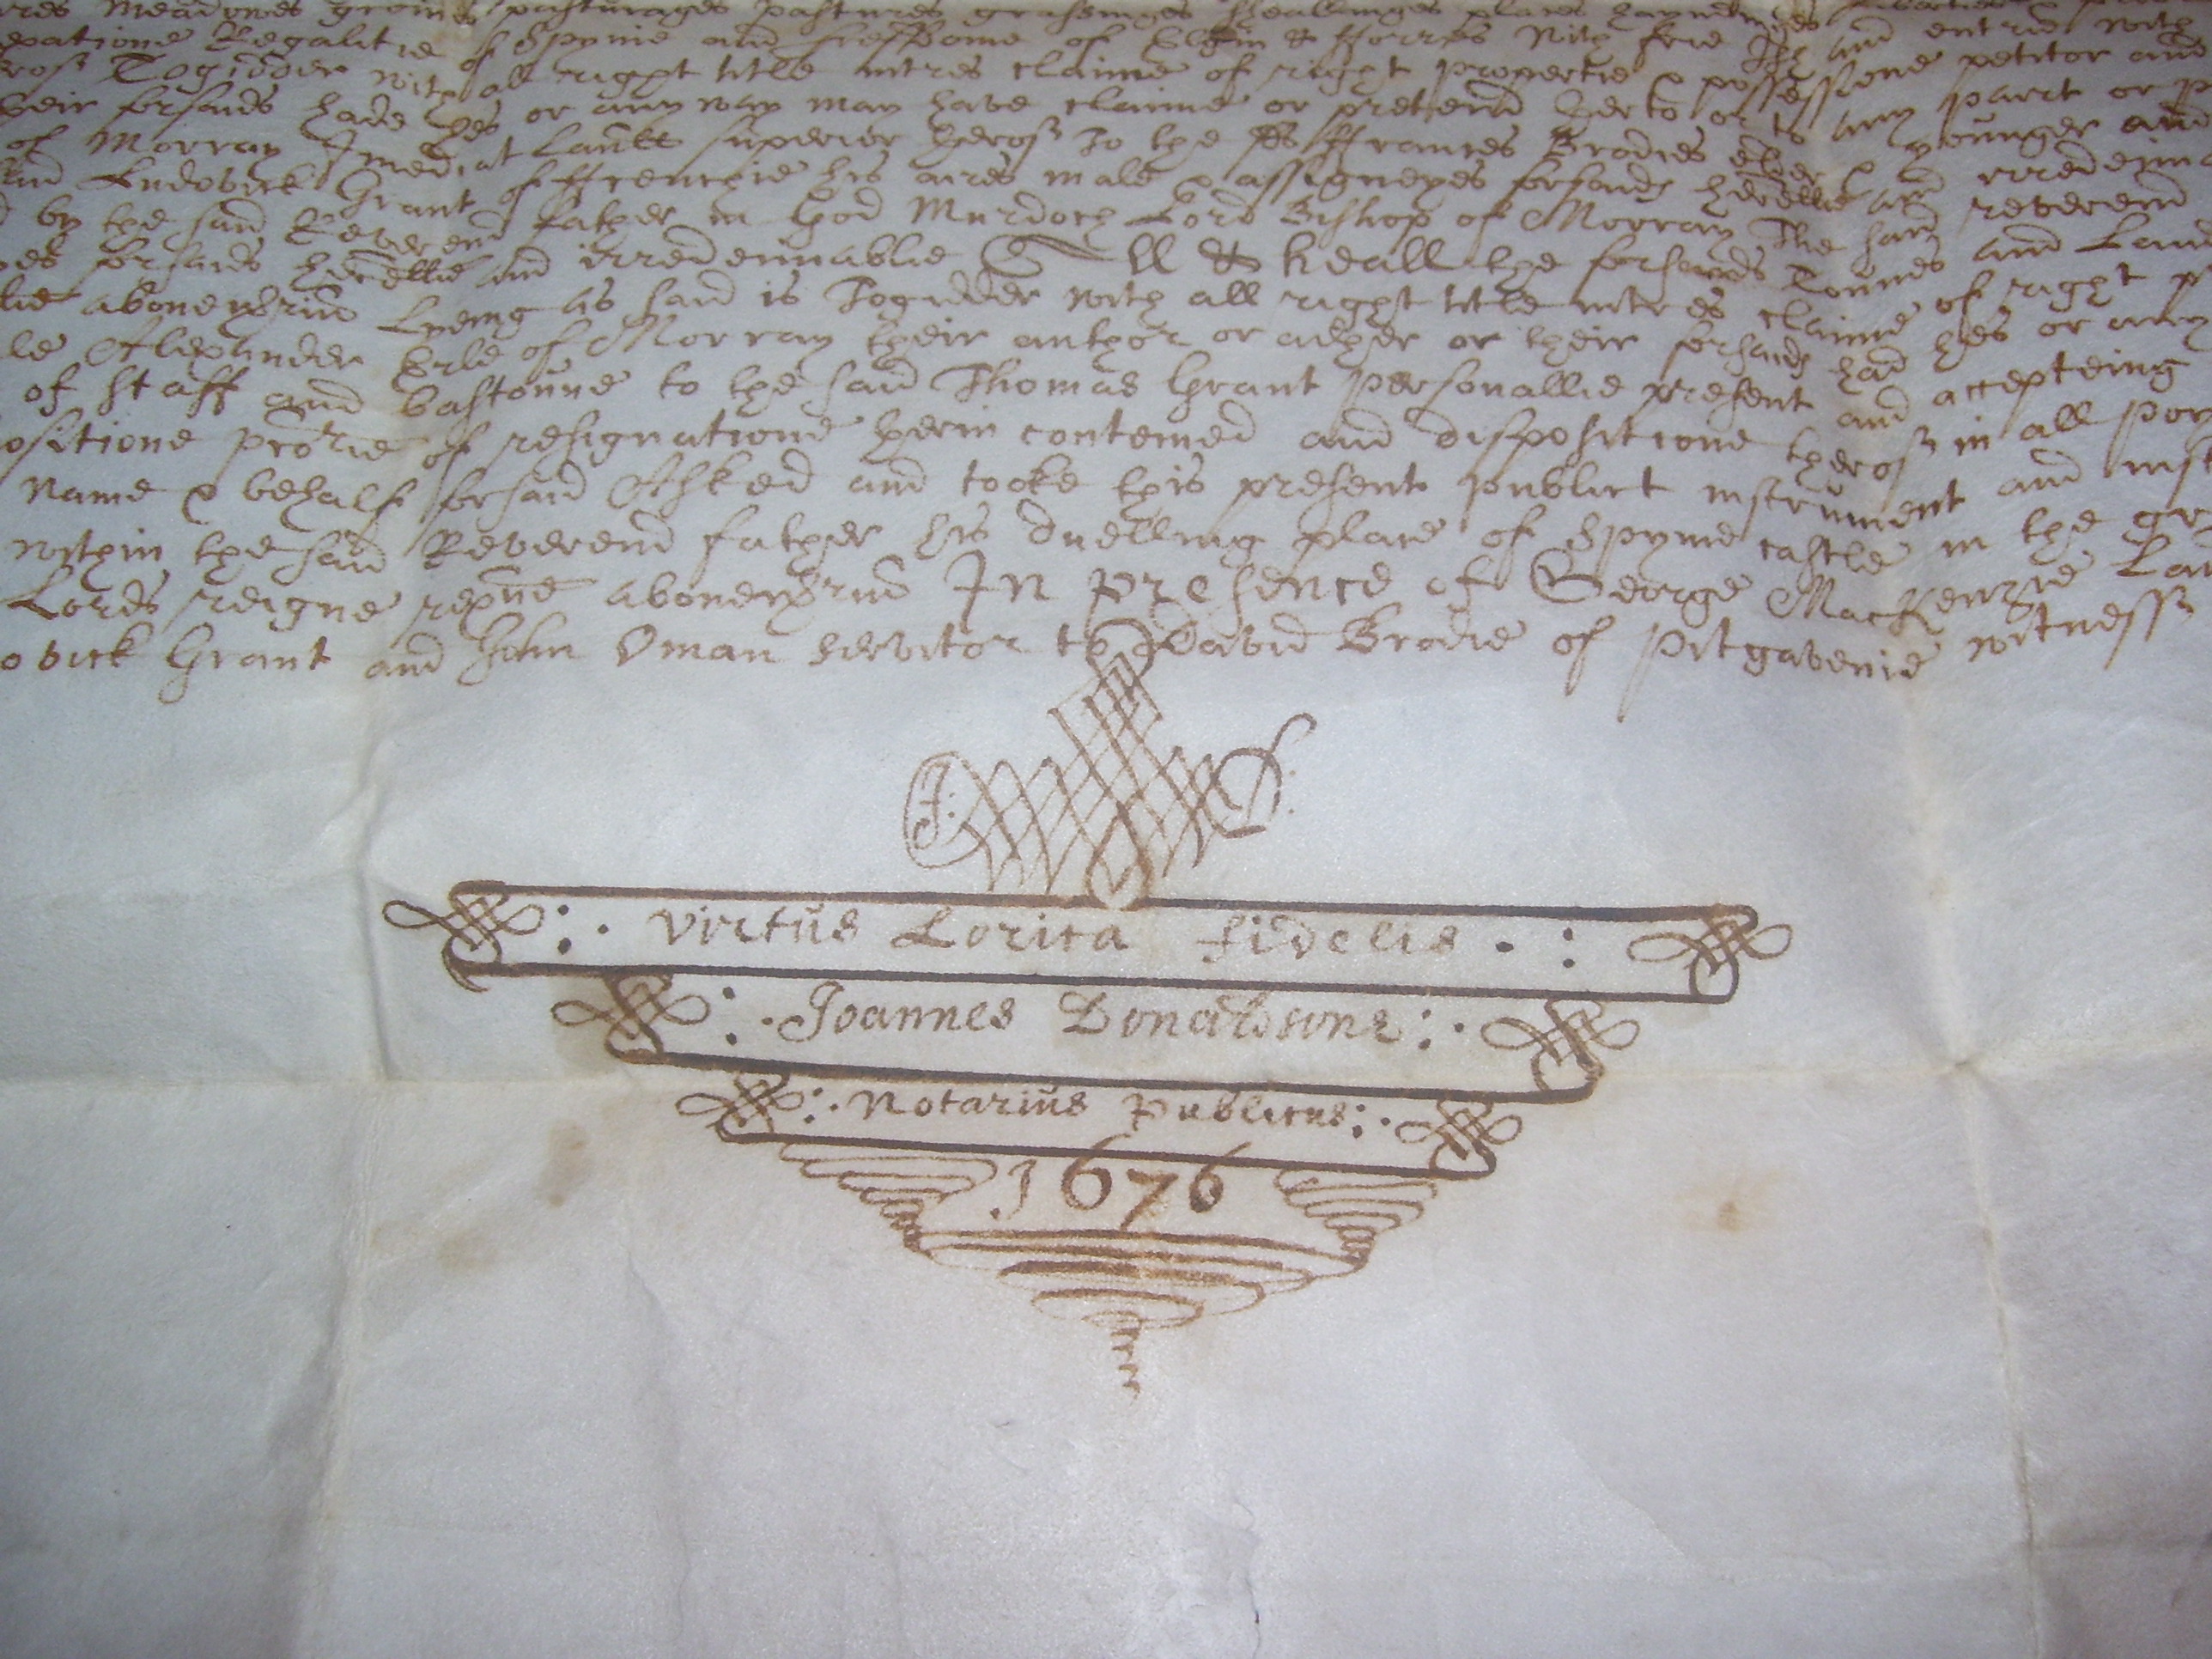 Meadowes groins pasturages pastures grassinges sheallinges places
Regalitie of Spynie and of Elgin & fforres with frie Ish and entrie with
Togidder with all right title intres claime of right propertie & possessione petitor and
forsaids hade hes or any way may have claime or pretend herto or to any part or
of Morray Imediat superior therof To the ffrances Brodies elder & younger and
Ludovick Grant of ffreuchie his aires male & assigneyes forsaids herellie and irredeima
by the said Reverend father in God Murdoch Lord Bishop of Morray The said reverend
forsaids herellie and irredeimablie All & heall the forsaids Tounes and Land
abonewrin Lyeing as said is Togidder with all right title intres claime of right
Alexander Erle of Morray their author or adher or their forsaids had hes or any
of staff and bastoune to the said Thomas Grant personallie present and accepteing
ositione of resignatione herin conteined and dispositione therof in all
name & behalfe forsaid Asked and tooke this present publict instrument and
within the said Reverend father his duelling place of Spynie castle in the
Lords reigne abonewrin In presence of George MacKenzie
ovick Grant and John Oman servitor to David Brodie of Pitgavenie witness
J: D:
:· Virtus Lorica fidelis ·:
:· Joannes Donaldsone :·
:· Notarius Publicus :·
1676